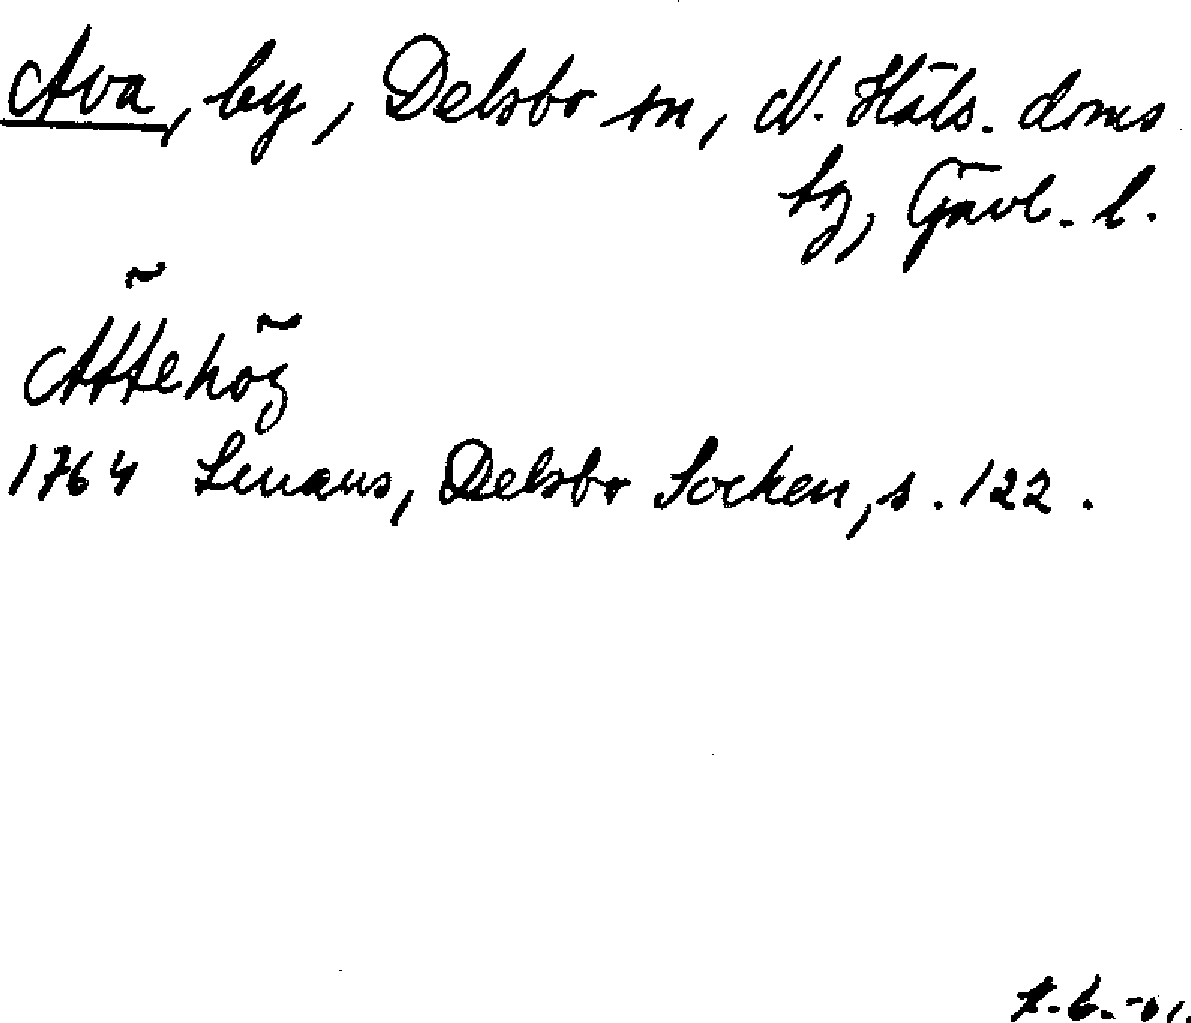 Ava, by, Delsbo sn, N. Häls. doms
tg, Gävl. l.
Ättehög
1764 Lenæus, Delsbo Socken, s. 122.